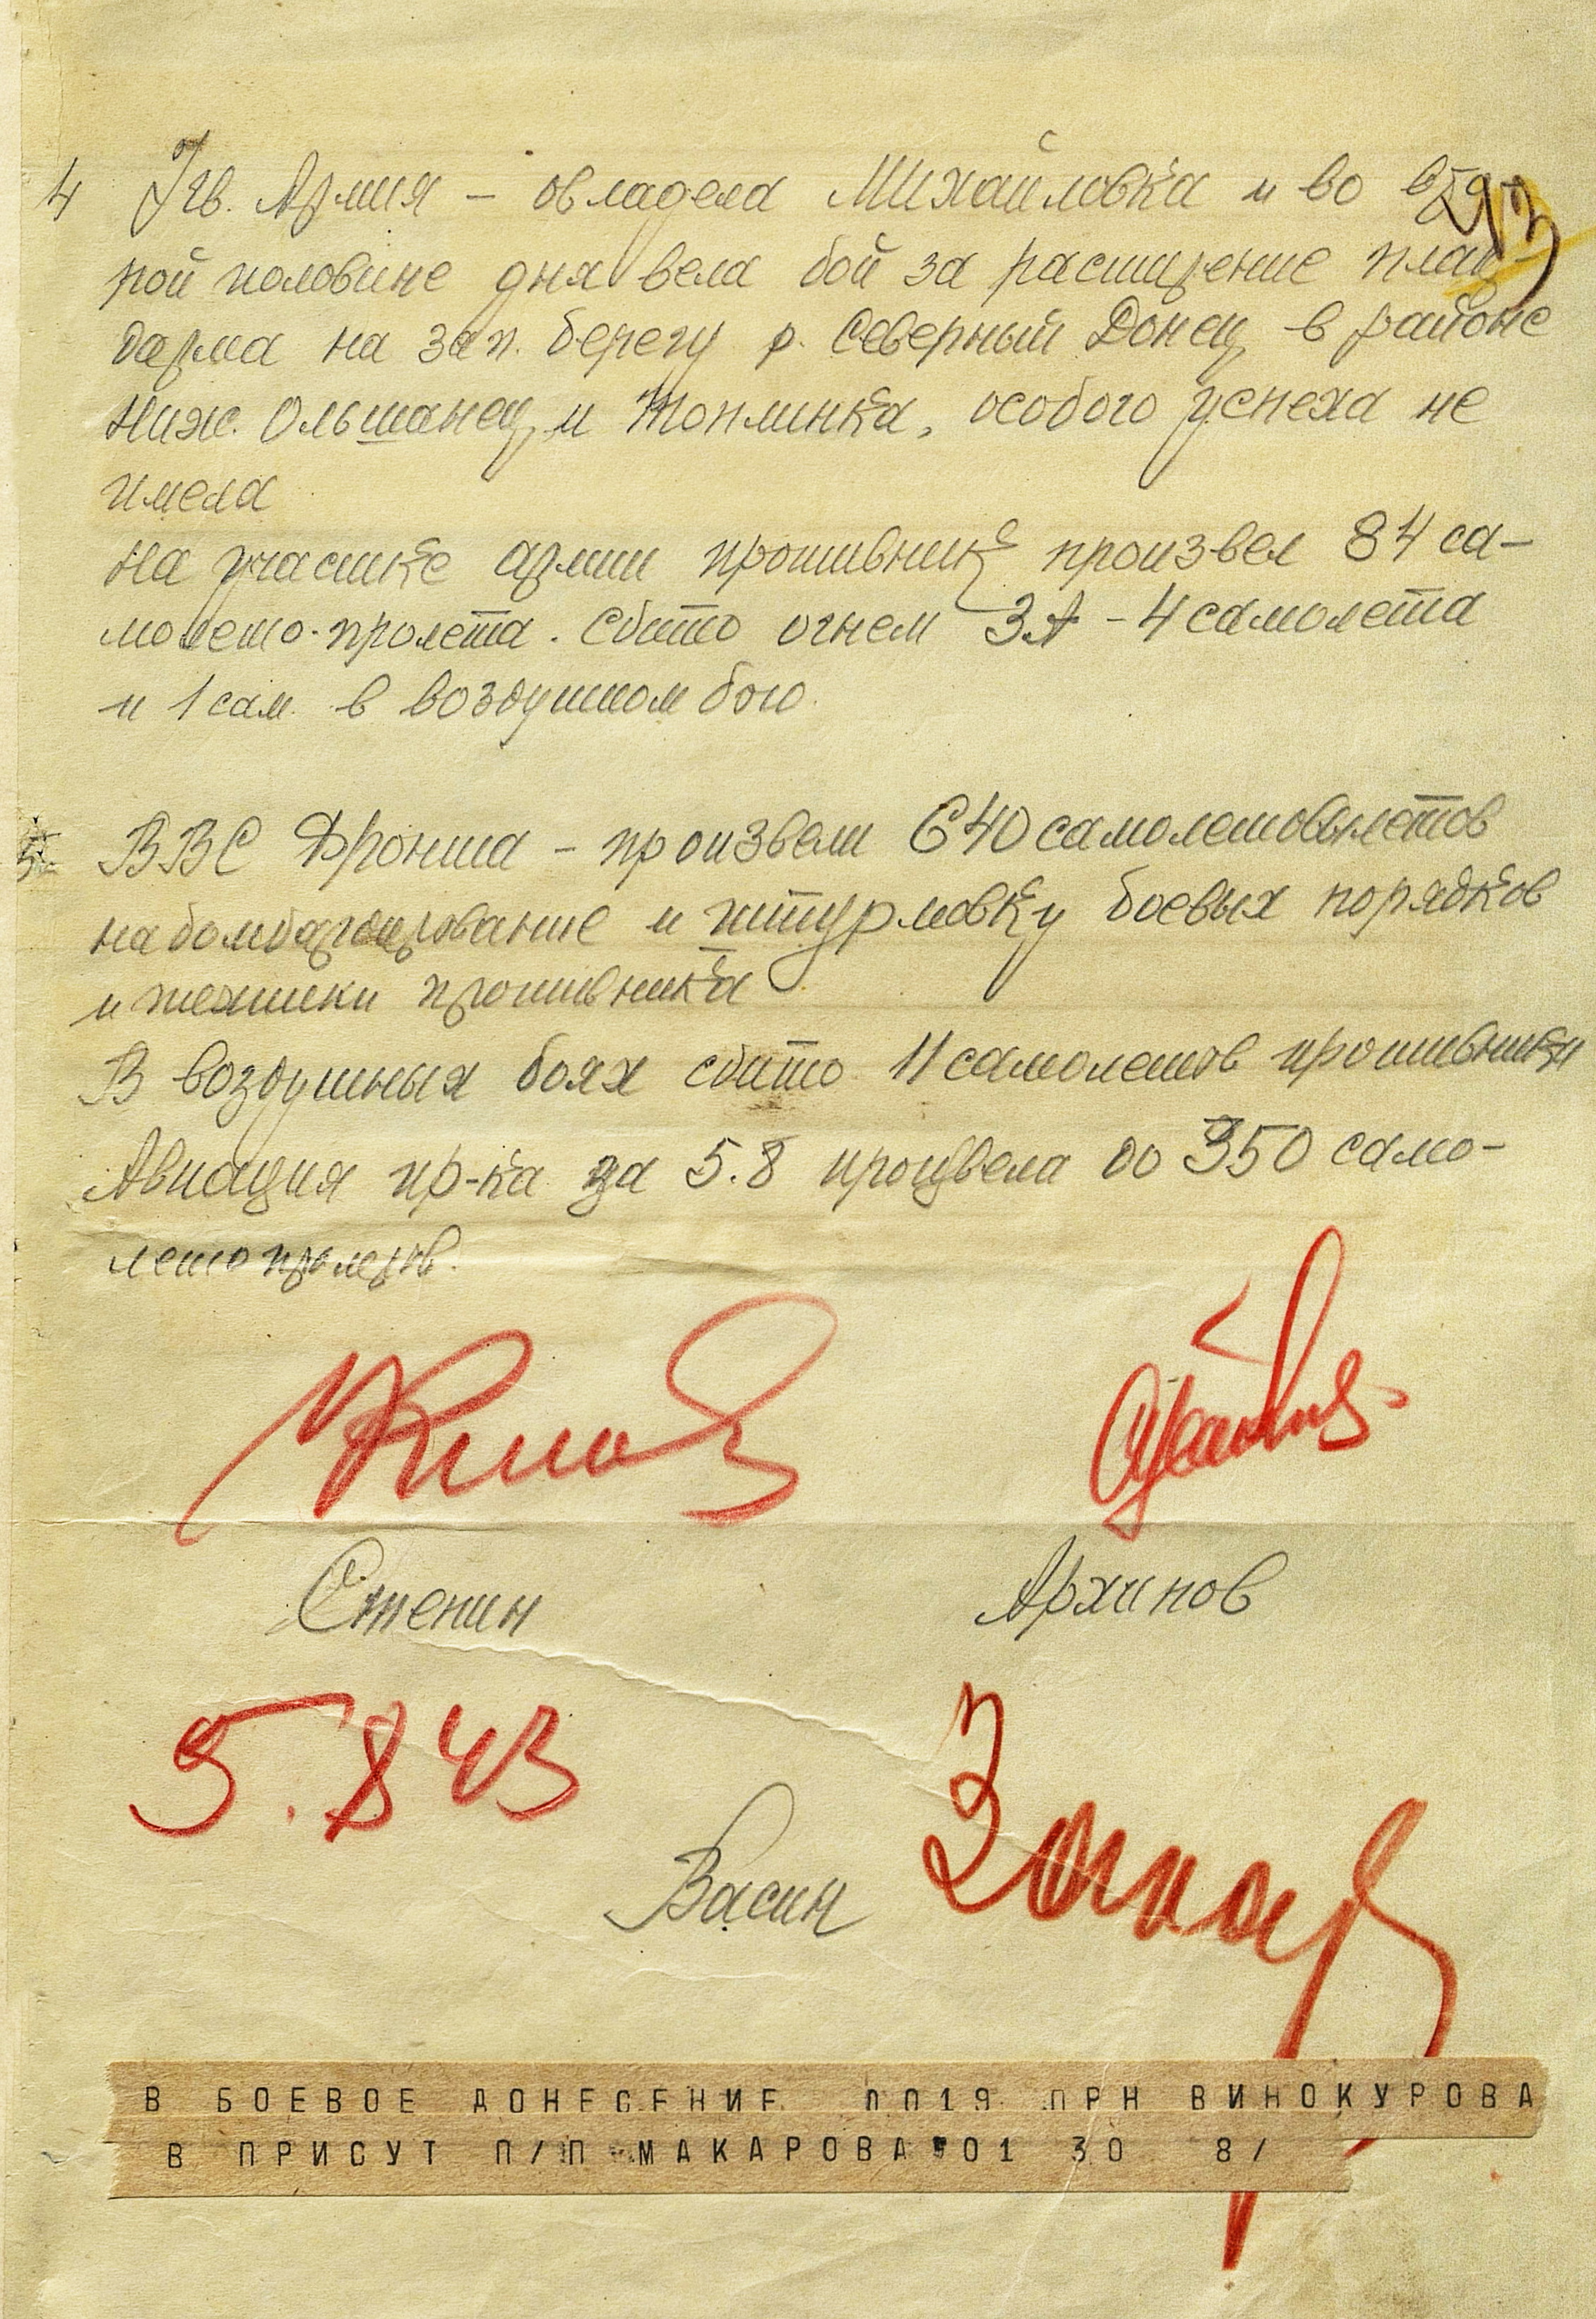 293
4 7 гв. Армия – овладела Михайловка и во вто-
рой половине дня вела бой за расширение плац-
дарма на зап. берегу р. Северный Донец в районе
Ниж. Ольшанец и Топлинка, особого успеха не
имела
На участке армии противник произвел 84 са-
молето-пролета. Сбито огнем ЗА – 4 самолета
и 1 сам. в воздушном бою.
5 ВВС Фронта – произвели 640 самолетовылетов
на бомбардирование и штурмовку боевых порядков
и техники противника
В воздушных боях сбито 11 самолетов противника
Авиация пр-ка за 5.8 произвела до 350 само-
лето пролетов.
Стенин Архипов
5.8 43
Васин
В БОЕВОЕ ДОНЕСЕНИЕ ПП19 ПРН ВИНОКУРОВА
В ПРИСУТ П/П МАКАРОВА 01 30 8/